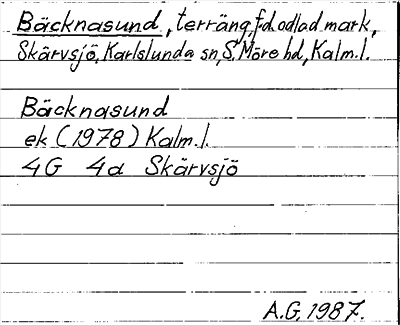 Bäcknasund, terräng, f.d. odlad mark,
Skärvsjö, Karlslunda sn, S. Möre hd, Kalm.l.
Bäcknasund
ek (1978) Kalm.l.
4G 4a Skärvsjö
A.G, 1987.